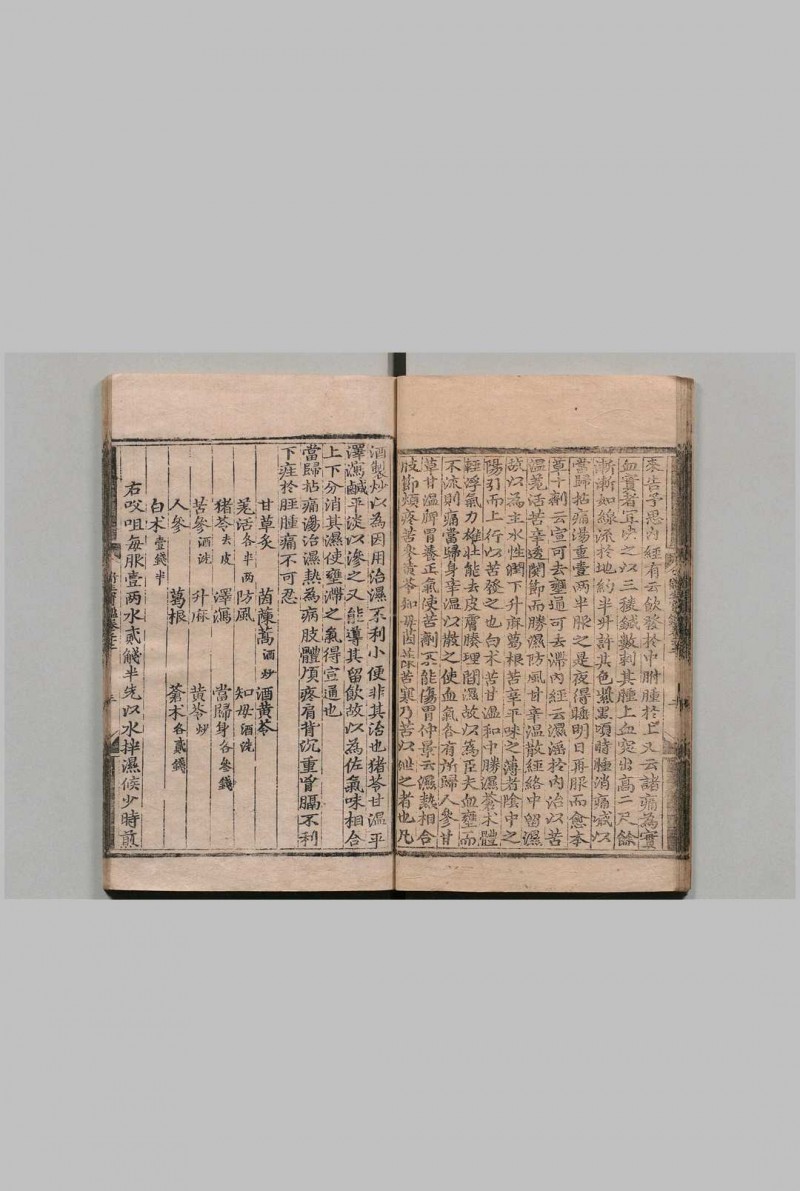 來告予思內經有云飲發於中胕腫於上又云諸痛為實
血實者宜决之以三稜鍼數刺其腫上血突出高二尺餘
漸漸如線流於地約半升許其色紫黑頃時腫消痛減以
當歸拈痛湯重壹兩半服之是夜得睡明日再服而愈本
草十劑云宣可去壅通可去滯內經云濕滛於內治以苦
溫羗活苦辛透關節而勝濕防風甘辛溫散經絡中留濕
故以為主水性潤下升麻葛根苦辛平味之薄者陰中之
陽引而上行以苦發之也白术苦甘溫和中勝濕蒼术體
輕浮氣力雄壯能去皮膚腠理間濕故以為臣夫血壅而
不流則痛當歸身辛溫以散之使血氣各有所歸人參甘
草甘溫脾胃養正氣使苦劑不能傷胃仲景云濕熱相合
肢節煩疼苦參黃芩知母茵蔯苦寒乃苦以泄之者也凡
酒製炒以為因用治濕不利小便非其治也猪苓甘溫平
澤瀉鹹平淡以滲之又能導其留飲故以為佐氣味相合
上下分消其濕使壅滯之氣得宣通也
當歸拈痛湯治濕熱為病肢體煩疼肩背沉重胷膈不利
下疰於脛腫痛不可忍
甘草炙 茵蔯蒿酒炒 酒黃芩
羗活各半兩 防風 知母酒洗
猪苓去皮 澤瀉 當歸身各參錢
苦參酒洗 升麻 黃芩炒
人參 葛根 蒼术各貳錢
白术壹錢半
右㕮咀每服壹兩水貳盞半先以水拌濕候少時煎